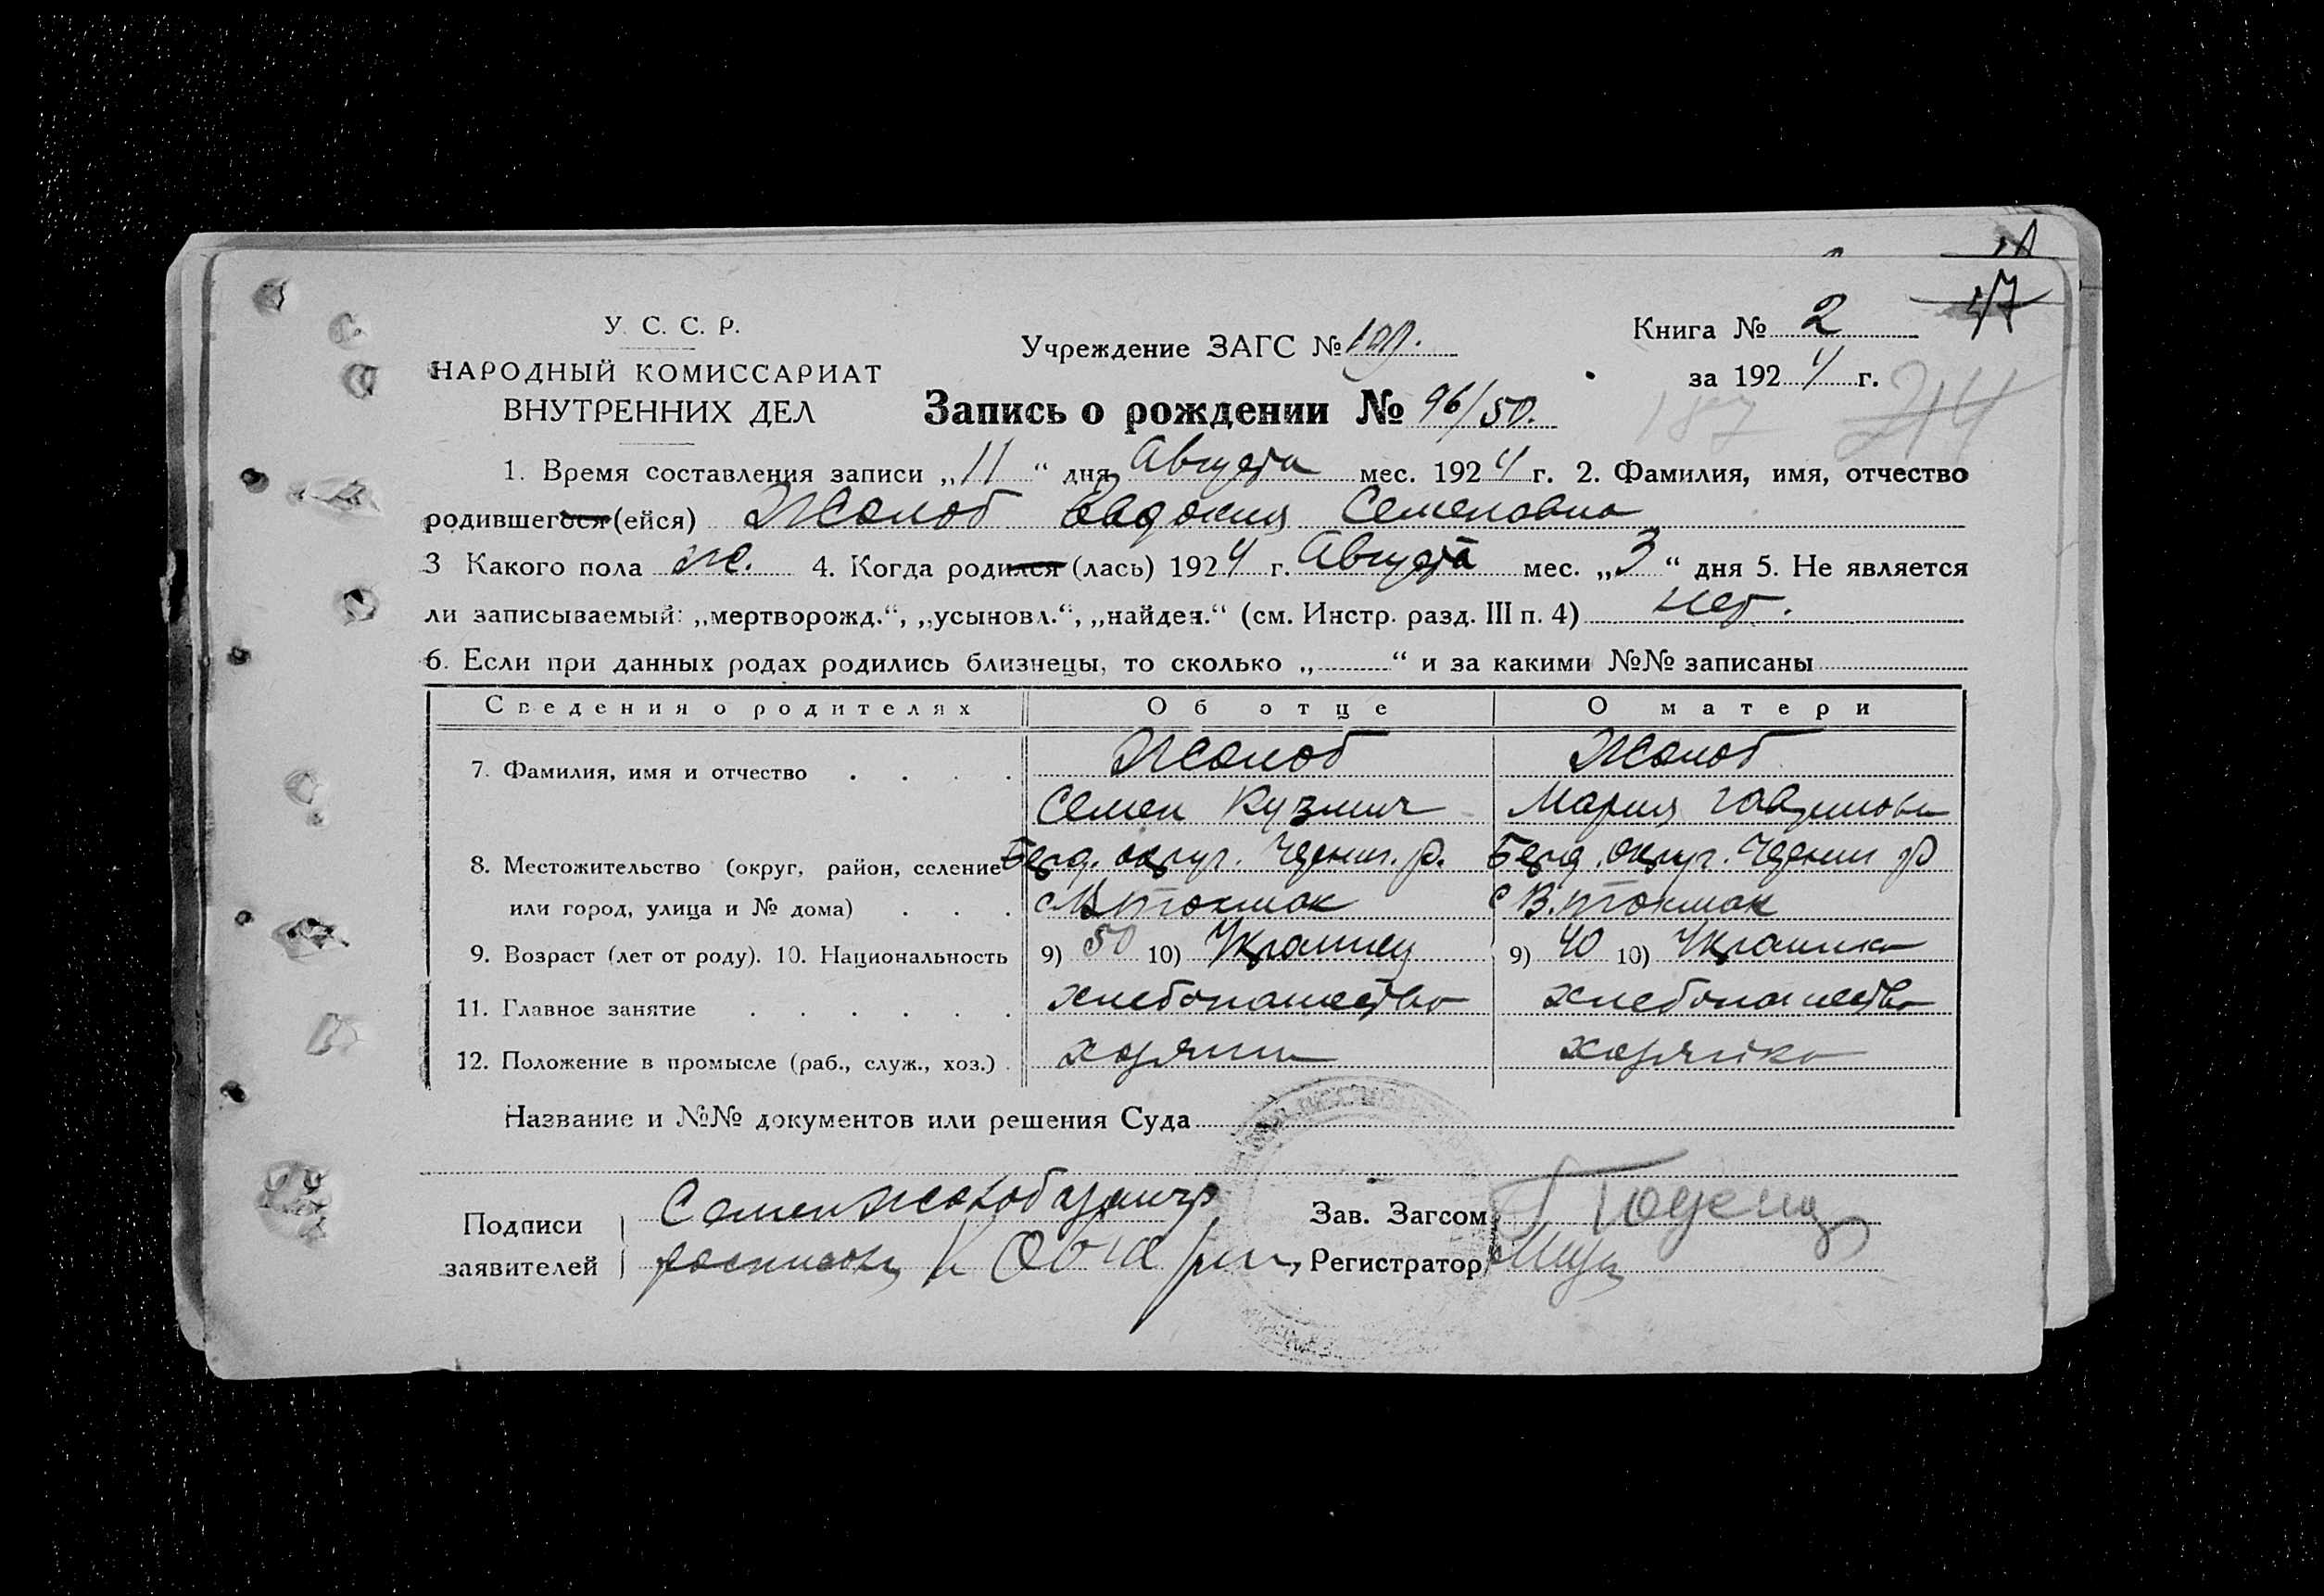 17
У. С. С. Р.
НАРОДНЫЙ КОМИССАРИАТ
ВНУТРЕННИХ ДЕЛ
Учреждение ЗАГС №
Книга № 2
за 1924 г.
Запись о рождении № 96/50.
187 214
1. Время составления записи „11“ дня Августа мес. 1924 г. 2. Фамилия, имя, отчество
родившегося (ейся) Жолоб Евдокия Семеновна
3 Какого пола ж. 4. Когда родился (лась) 1924 г. Августа мес. „3“ дня 5. Не является
ли записываемый: „мертворожд.“, „усыновл.“, „найден.“ (см. Инстр. разд. III п. 4) нет.
6. Если при данных родах родились близнецы, то сколько „ “ и за какими №№ записаны
Сведения о родителях Об отце О матери
7. Фамилия, имя и отчество Жолоб Жолоб
Семен Кузмич Мария
8. Местожительство (округ, район, селение Берд. округ. Черниг. р. Берд. округ. Черниг р
или город, улица и № дома) с В. Токмак с В. Токмак
9. Возраст (лет от роду). 10. Национальность 9) 50 10) Украинец 9) 40 10) Украинка
11. Главное занятие хлебопашество хлебопашество
12. Положение в промысле (раб., служ., хоз.) хозяин хозяйка
Название и №№ документов или решения Суда
Подписи Семен Жолоб Зав. Загсом
заявителей Регистратор